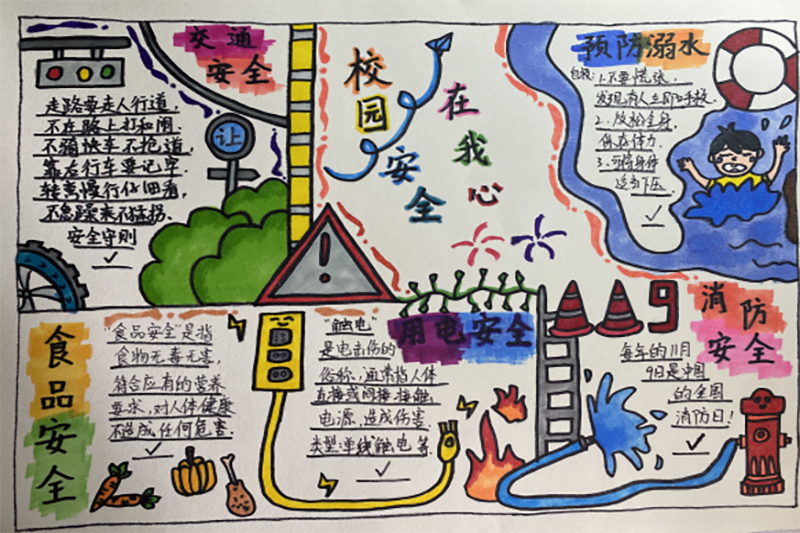 交通
安全
走路要走人行道,
不在路上打和闹.
不骑快车不抢道,
靠右行车要记牢.
转弯慢行仔细看,
不急躁来不猛拐.
安全守则
让
校园安全
在我心
预防溺水
自救: 1.不要慌张,
发现有人立即呼救.
2.放松全身,
保存体力.
3.可将身体
适当下压.
食品安全
"食品安全"是指
食物无毒无害,
符合应有的营养
要求,对人体健康
不造成任何危害.
用电安全
"触电"
是电击伤的
俗称,通常指人体
直接或间接接触
电源,造成伤害.
类型:单线触电等.
119
消防
安全
每年的11月
9日是中国
的全国
消防日!